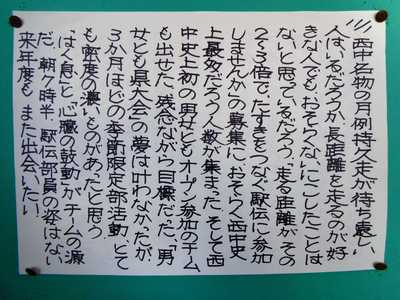 西中名物の月例持久走が待ち遠しい
人は、いるだろうか。長距離を走るのが好
きな人でも、おそらくないにこしたことは
ないと思っているだろう。走る距離が、その
2~3倍で、たすきをつなぐ駅伝に参加
しませんかの募集に、おそらく西中史
上最多だろう人数が集まった。そして西
中史上初の男女ともオープン参加のチーム
も出せた。残念ながら目標だった、「男
女とも県大会」の夢は叶わなかったが、
3か月ほどの季節限定部活動、とて
も密度の濃いものがあったと思う。
「はく息」と「心臓の鼓動」がチームの源
だ。朝7時半、駅伝部員の姿はない。
来年度も、また出会いたい。